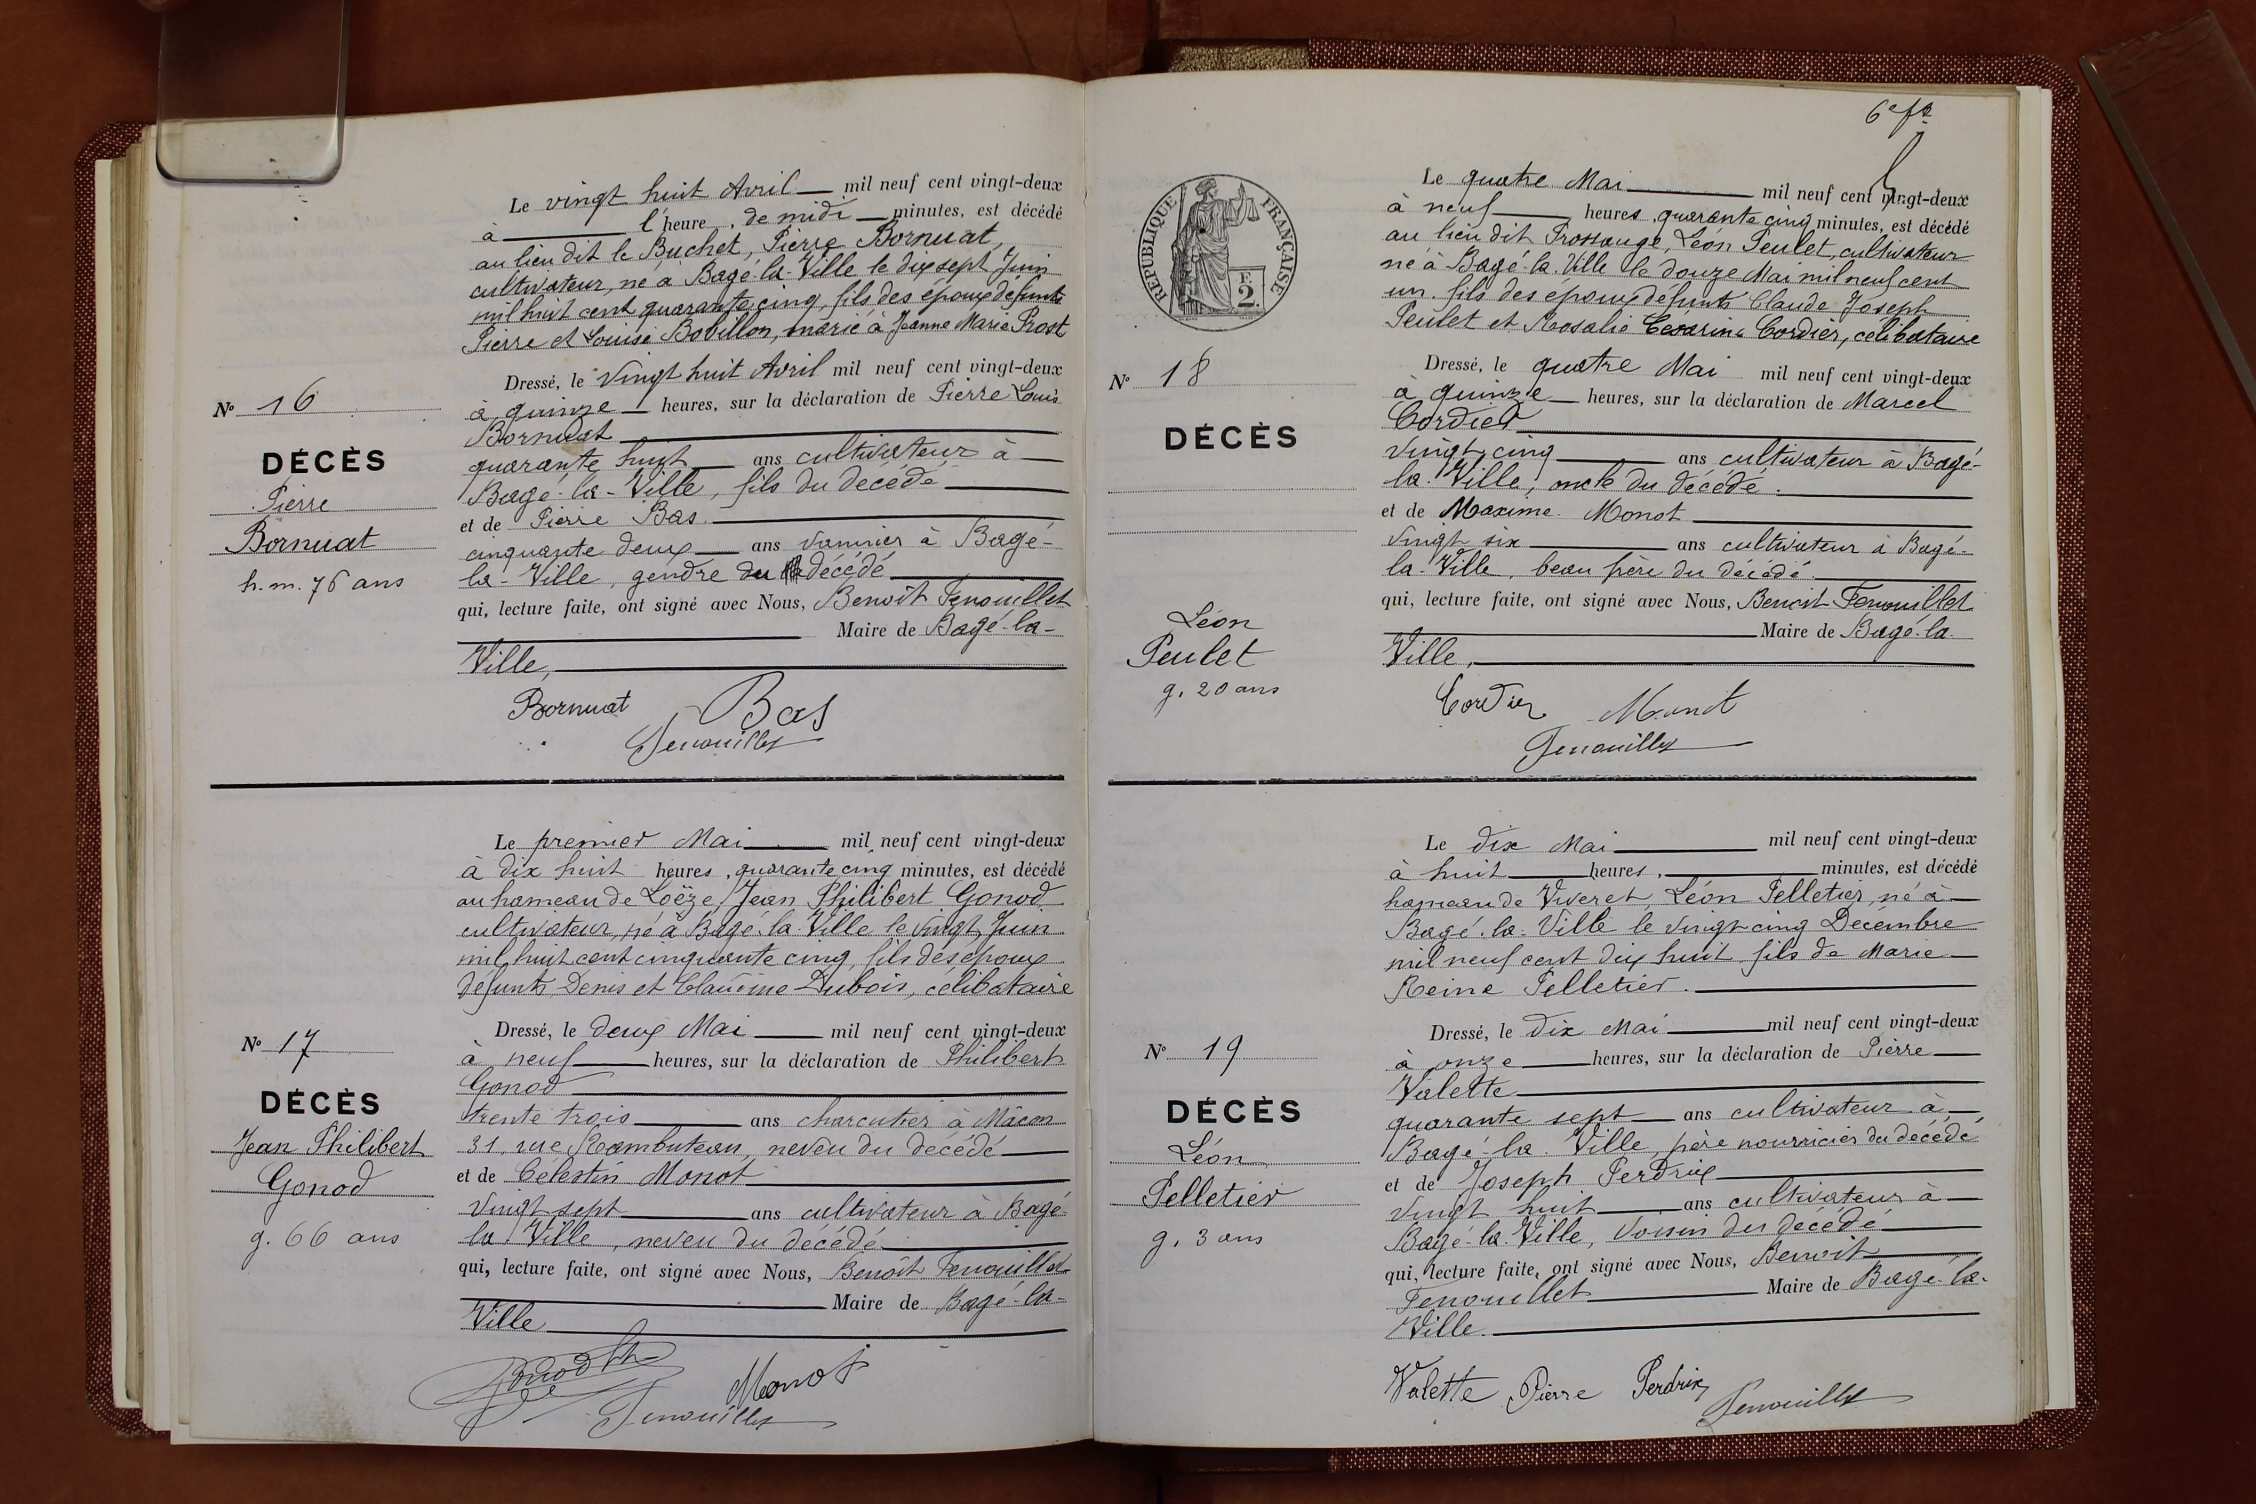 Le vingt huit Avril mil neuf cent vingt-deux
à l'heure, de midi minutes, est décédé
au lieu dit le Buchet, Pierre Bornuat,
cultivateur, né à Bagé-la-Ville le dix sept Juin
mil huit cent quarante cinq, fils des époux défunts
Pierre et Louise Bobillon, marié à Jeanne Marie Prost
Dressé, le vingt huit Avril mil neuf cent vingt-deux
à quinze heures, sur la déclaration de Pierre Louis
Bornuat
quarante huit ans cultivateur à
Bagé-la-Ville, fils du décédé
et de Pierre Bas
cinquante deux ans vannier à Bagé-
la-Ville, gendre du décédé
qui, lecture faite, ont signé avec Nous, Benoît Fenouillet
Maire de Bagé-la-
Ville,
Bornuat Bas
Fenouillet
No 16
DÉCÈS
Pierre
Bornuat
h.m. 76 ans
Le premier Mai mil neuf cent vingt-deux
à dix huit heures, quarante cinq minutes, est décédé
au hameau de Loëze, Jean Philibert Gonod
cultivateur, né à Bagé-la-Ville le vingt Juin
mil huit cent cinquante cinq, fils des époux
défunts Denis et Claudine Dubois, célibataire
Dressé, le deux Mai mil neuf cent vingt-deux
à neuf heures, sur la déclaration de Philibert
Gonod
trente trois ans charcutier à Mâcon
31, rue Rambuteau, neveu du décédé
et de Celestin Monot
vingt sept ans cultivateur à Bagé
la Ville, neveu du décédé
qui, lecture faite, ont signé avec Nous, Benoît Fenouillet
Maire de Bagé-la-
Ville
Gonod Ph Monot
Fenouillet
No 17
DÉCÈS
Jean Philibert
Gonod
g. 66 ans
6e f
RÉPUBLIQUE FRANÇAISE
2
Le quatre Mai mil neuf cent vingt-deux
à neuf heures, quarante cinq minutes, est décédé
au lieu dit Frossange, Léon Peulet, cultivateur
né à Bagé-la-Ville le douze Mai mil neuf cent
un, fils des époux défunts Claude Joseph
Peulet et Rosalie Césarine Cordier, célibataire
Dressé, le quatre Mai mil neuf cent vingt-deux
à quinze heures, sur la déclaration de Marcel
Cordier
vingt cinq ans cultivateur à Bagé-
la-Ville, oncle du décédé.
et de Maxime Monot
vingt six ans cultivateur à Bagé-
la-Ville, beau frère du décédé.
qui, lecture faite, ont signé avec Nous, Benoit Fenouillet
Maire de Bagé-la
Ville,
Cordier Monot
Fenouillet
No 18
DÉCÈS
Léon
Peulet
g. 20 ans
Le dix Mai mil neuf cent vingt-deux
à huit heures, minutes, est décédé
hameau de Viveret, Léon Pelletier, né à
Bagé-la-Ville le vingt cinq Décembre
mil neuf cent dix huit fils de Marie
Reine Pelletier.
Dressé, le dix Mai mil neuf cent vingt-deux
à onze heures, sur la déclaration de Pierre
Valette
quarante sept ans cultivateur à
Bagé-la-Ville, père nourricier du décédé
et de Joseph Perdrix
vingt huit ans cultivateur à
Bagé-la-Ville, voisin du décédé
qui, lecture faite, ont signé avec Nous, Benoit
Fenouillet Maire de Bagé-la-
Ville.
Valette Pierre Perdrix
Fenouillet
No 19
DÉCÈS
Léon
Pelletier
g. 3 ans